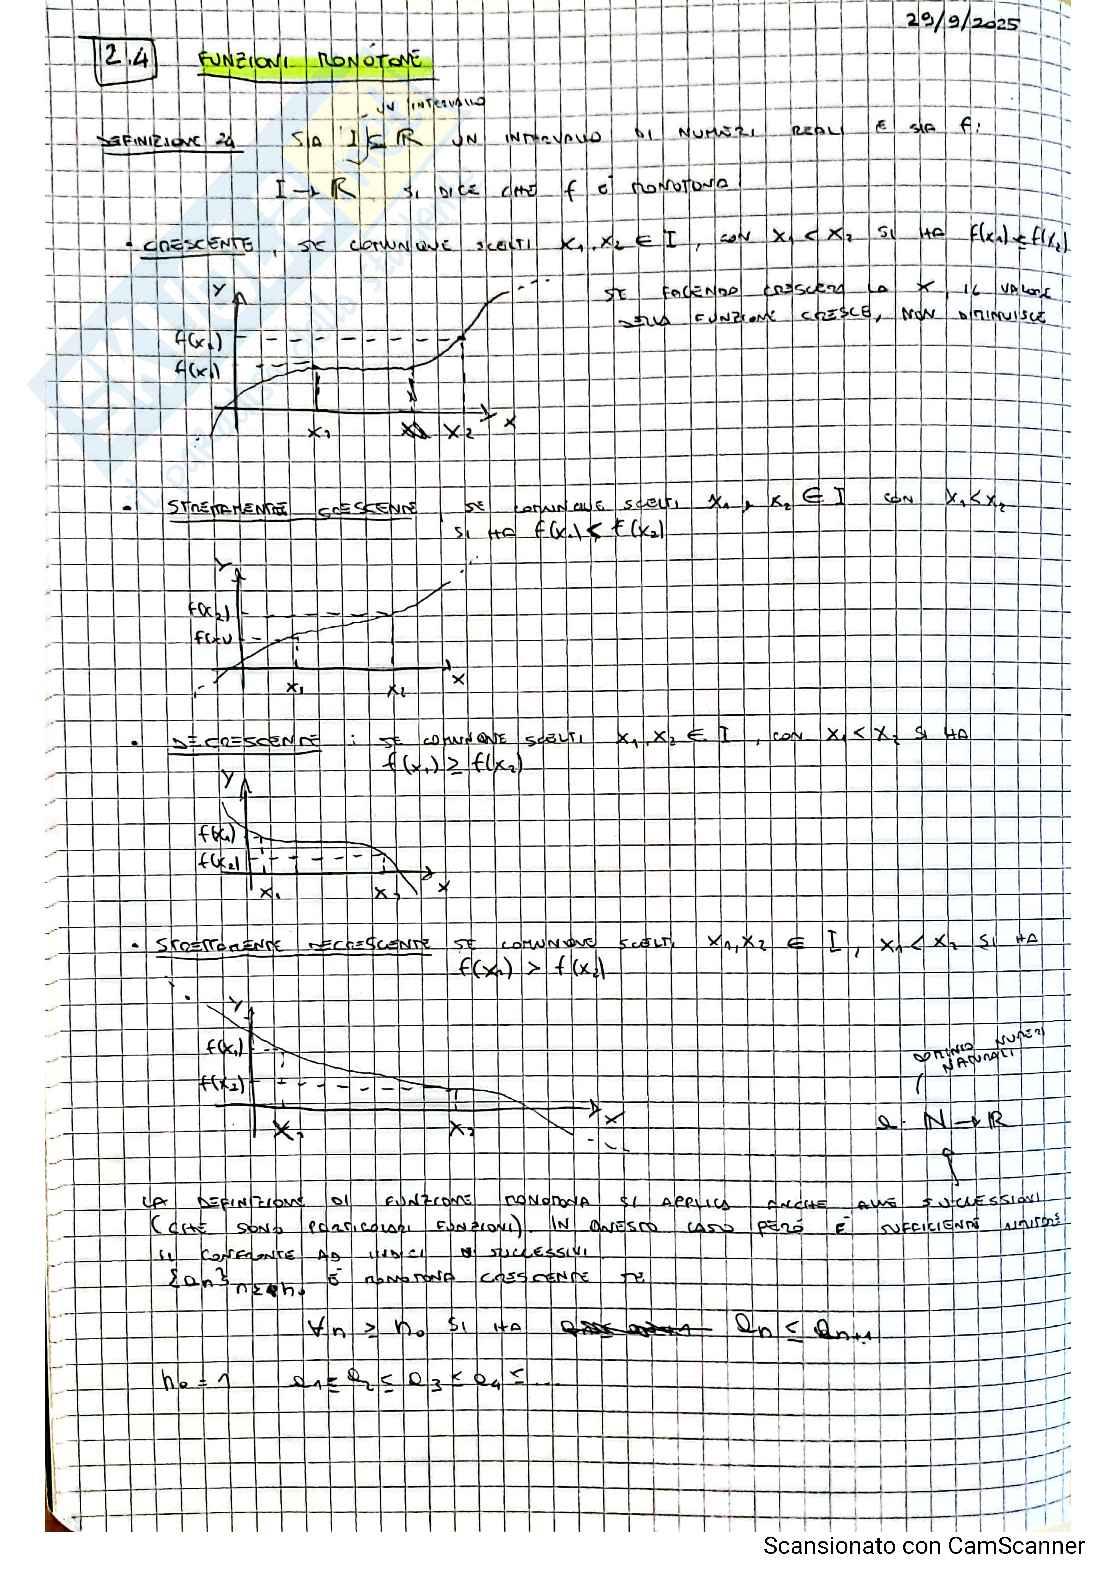 29/9/2025
2.4 FUNZIONI MONÓTONE
UN INTERVALLO
DEFINIZIONE 24 SIA I ⊆ ℝ UN INTERVALLO DI NUMERI REALI E SIA f:
I → ℝ SI DICE CHE f È MONOTONA
• CRESCENTE, SE COMUNQUE SCELTI x₁, x₂ ∈ I, CON x₁ < x₂ SI HA f(x₁) ≤ f(x₂)
SE FACENDO CRESCERE LA x, IL VALORE
DELLA FUNZIONE CRESCE, NON DIMINUISCE
y
f(x₂)
f(x₁)
x₁ x₂ x
• STRETTAMENTE CRESCENTE, SE COMUNQUE SCELTI x₁, x₂ ∈ I CON x₁ < x₂
SI HA f(x₁) < f(x₂)
y
f(x₂)
f(x₁)
x₁ x₂ x
• DECRESCENTE : SE COMUNQUE SCELTI x₁, x₂ ∈ I, CON x₁ < x₂ SI HA
f(x₁) ≥ f(x₂)
y
f(x₁)
f(x₂)
x₁ x₂ x
• STRETTAMENTE DECRESCENTE SE COMUNQUE SCELTI x₁, x₂ ∈ I, x₁ < x₂ SI HA
f(x₁) > f(x₂)
y
f(x₁)
f(x₂)
x₁ x₂ x
DOMINIO NUMERI
NATURALI
a: ℕ → ℝ
LA DEFINIZIONE DI FUNZIONE MONOTONA SI APPLICA ANCHE ALLE SUCCESSIONI
(CHE SONO PARTICOLARI FUNZIONI) IN QUESTO CASO PERÒ È SUFFICIENTE
IL CONFRONTE AD INDICI SUCCESSIVI
{an}n≥n₀ È MONOTONA CRESCENTE SE
∀n ≥ n₀ SI HA an ≤ an+1
n₀ = 1 a₁ ≤ a₂ ≤ a₃ ≤ a₄ ≤ ...
Scansionato con CamScanner